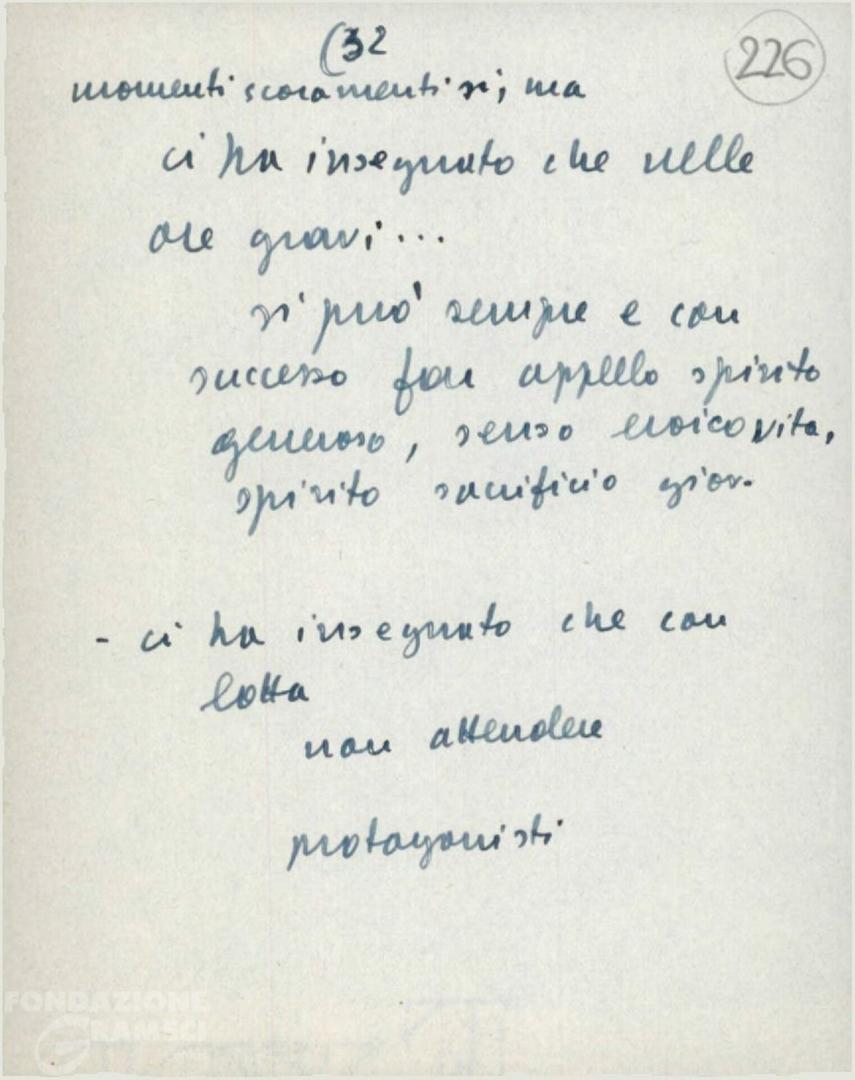 (32
226
momenti scoramenti sì, ma
ci ha insegnato che nelle
ore gravi...
si può sempre e con
successo far appello spirito
generoso, senso eroico vita,
spirito sacrificio giov.
- ci ha insegnato che con
lotta
non attendere
protagonisti
FONDAZIONE
GRAMSCI